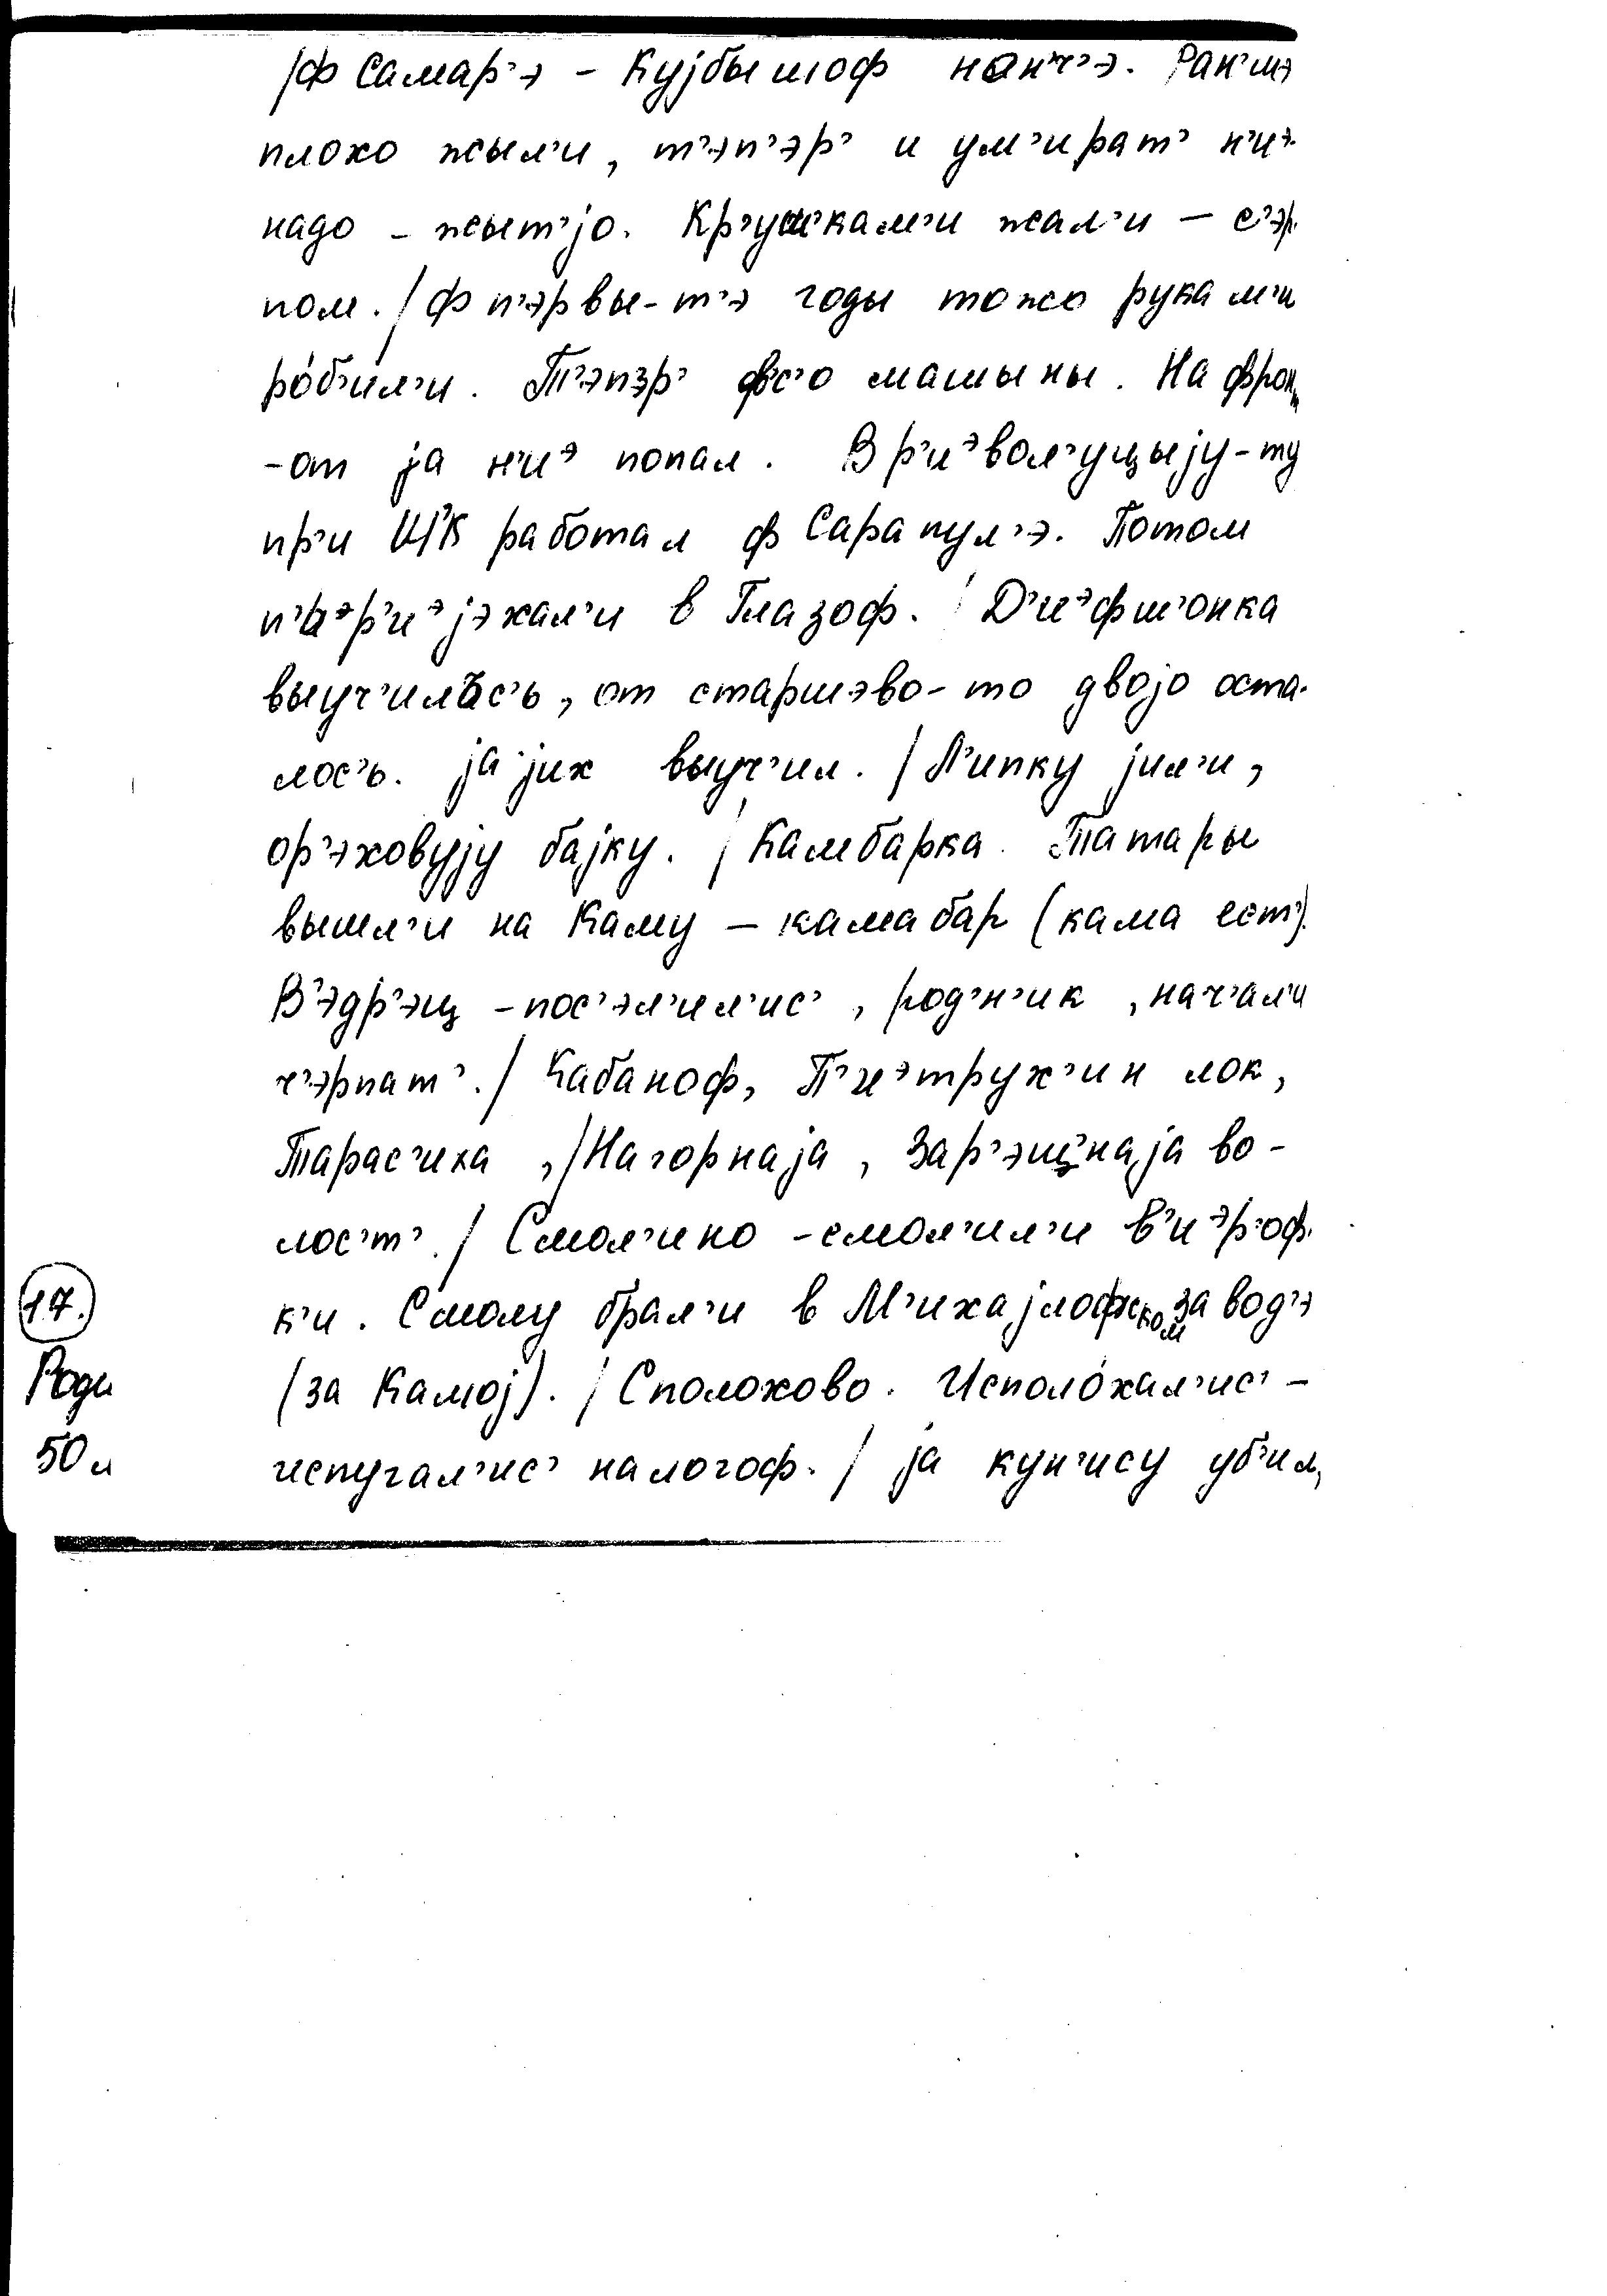 /Ф Самар'э – Кујбышоф нонч'э. Ран'шэ
плохо жыл'и, т'эп'эр' и ум'ират' н'иᵊ-
надо – жыт'јо. Кр'ушкам'и жал'и – с'эр-
пом. / Ф п'эрвы-т'э годы тожо рукам'и
ро́б'ил'и. Т'эпэр' фс'о машыны. На фрон
-от ја н'иᵊ попал. В р'иᵊвол'уцыју-ту
пр'и ЦК работал ф Сарапул'э. Потом
п'иᵊр'иᵊјэхал'и в Глазоф. / Д'иᵊфш'онка
выуч'илас'ь, от старшэво-то двојо оста-
лос'ь. ја јих выуч'ил. / Л'ипку јил'и,
ор'эховују бајку. / Камбарка. Татары
вышл'и на Каму – камабар (кама ест').
В'эдр'эц – пос'эл'ил'ис', род'н'ик, нач'ал'и
ч'эрпат'. / Кабаноф, П'иᵊтрух'ин лок,
Тарас'иха, / Нагорнаја, Зар'эшнаја во-
лос'т'. / Смол'ино – смол'ил'и в'иᵊр'оф-
к'и. Смолу брал'и в М'ихајлофском завод'э
(за Камој). / Сполохово. Исполо́хал'ис' –
испугал'ис' налогоф. / ја кун'ису уб'ил,
17.
Роди
50 л